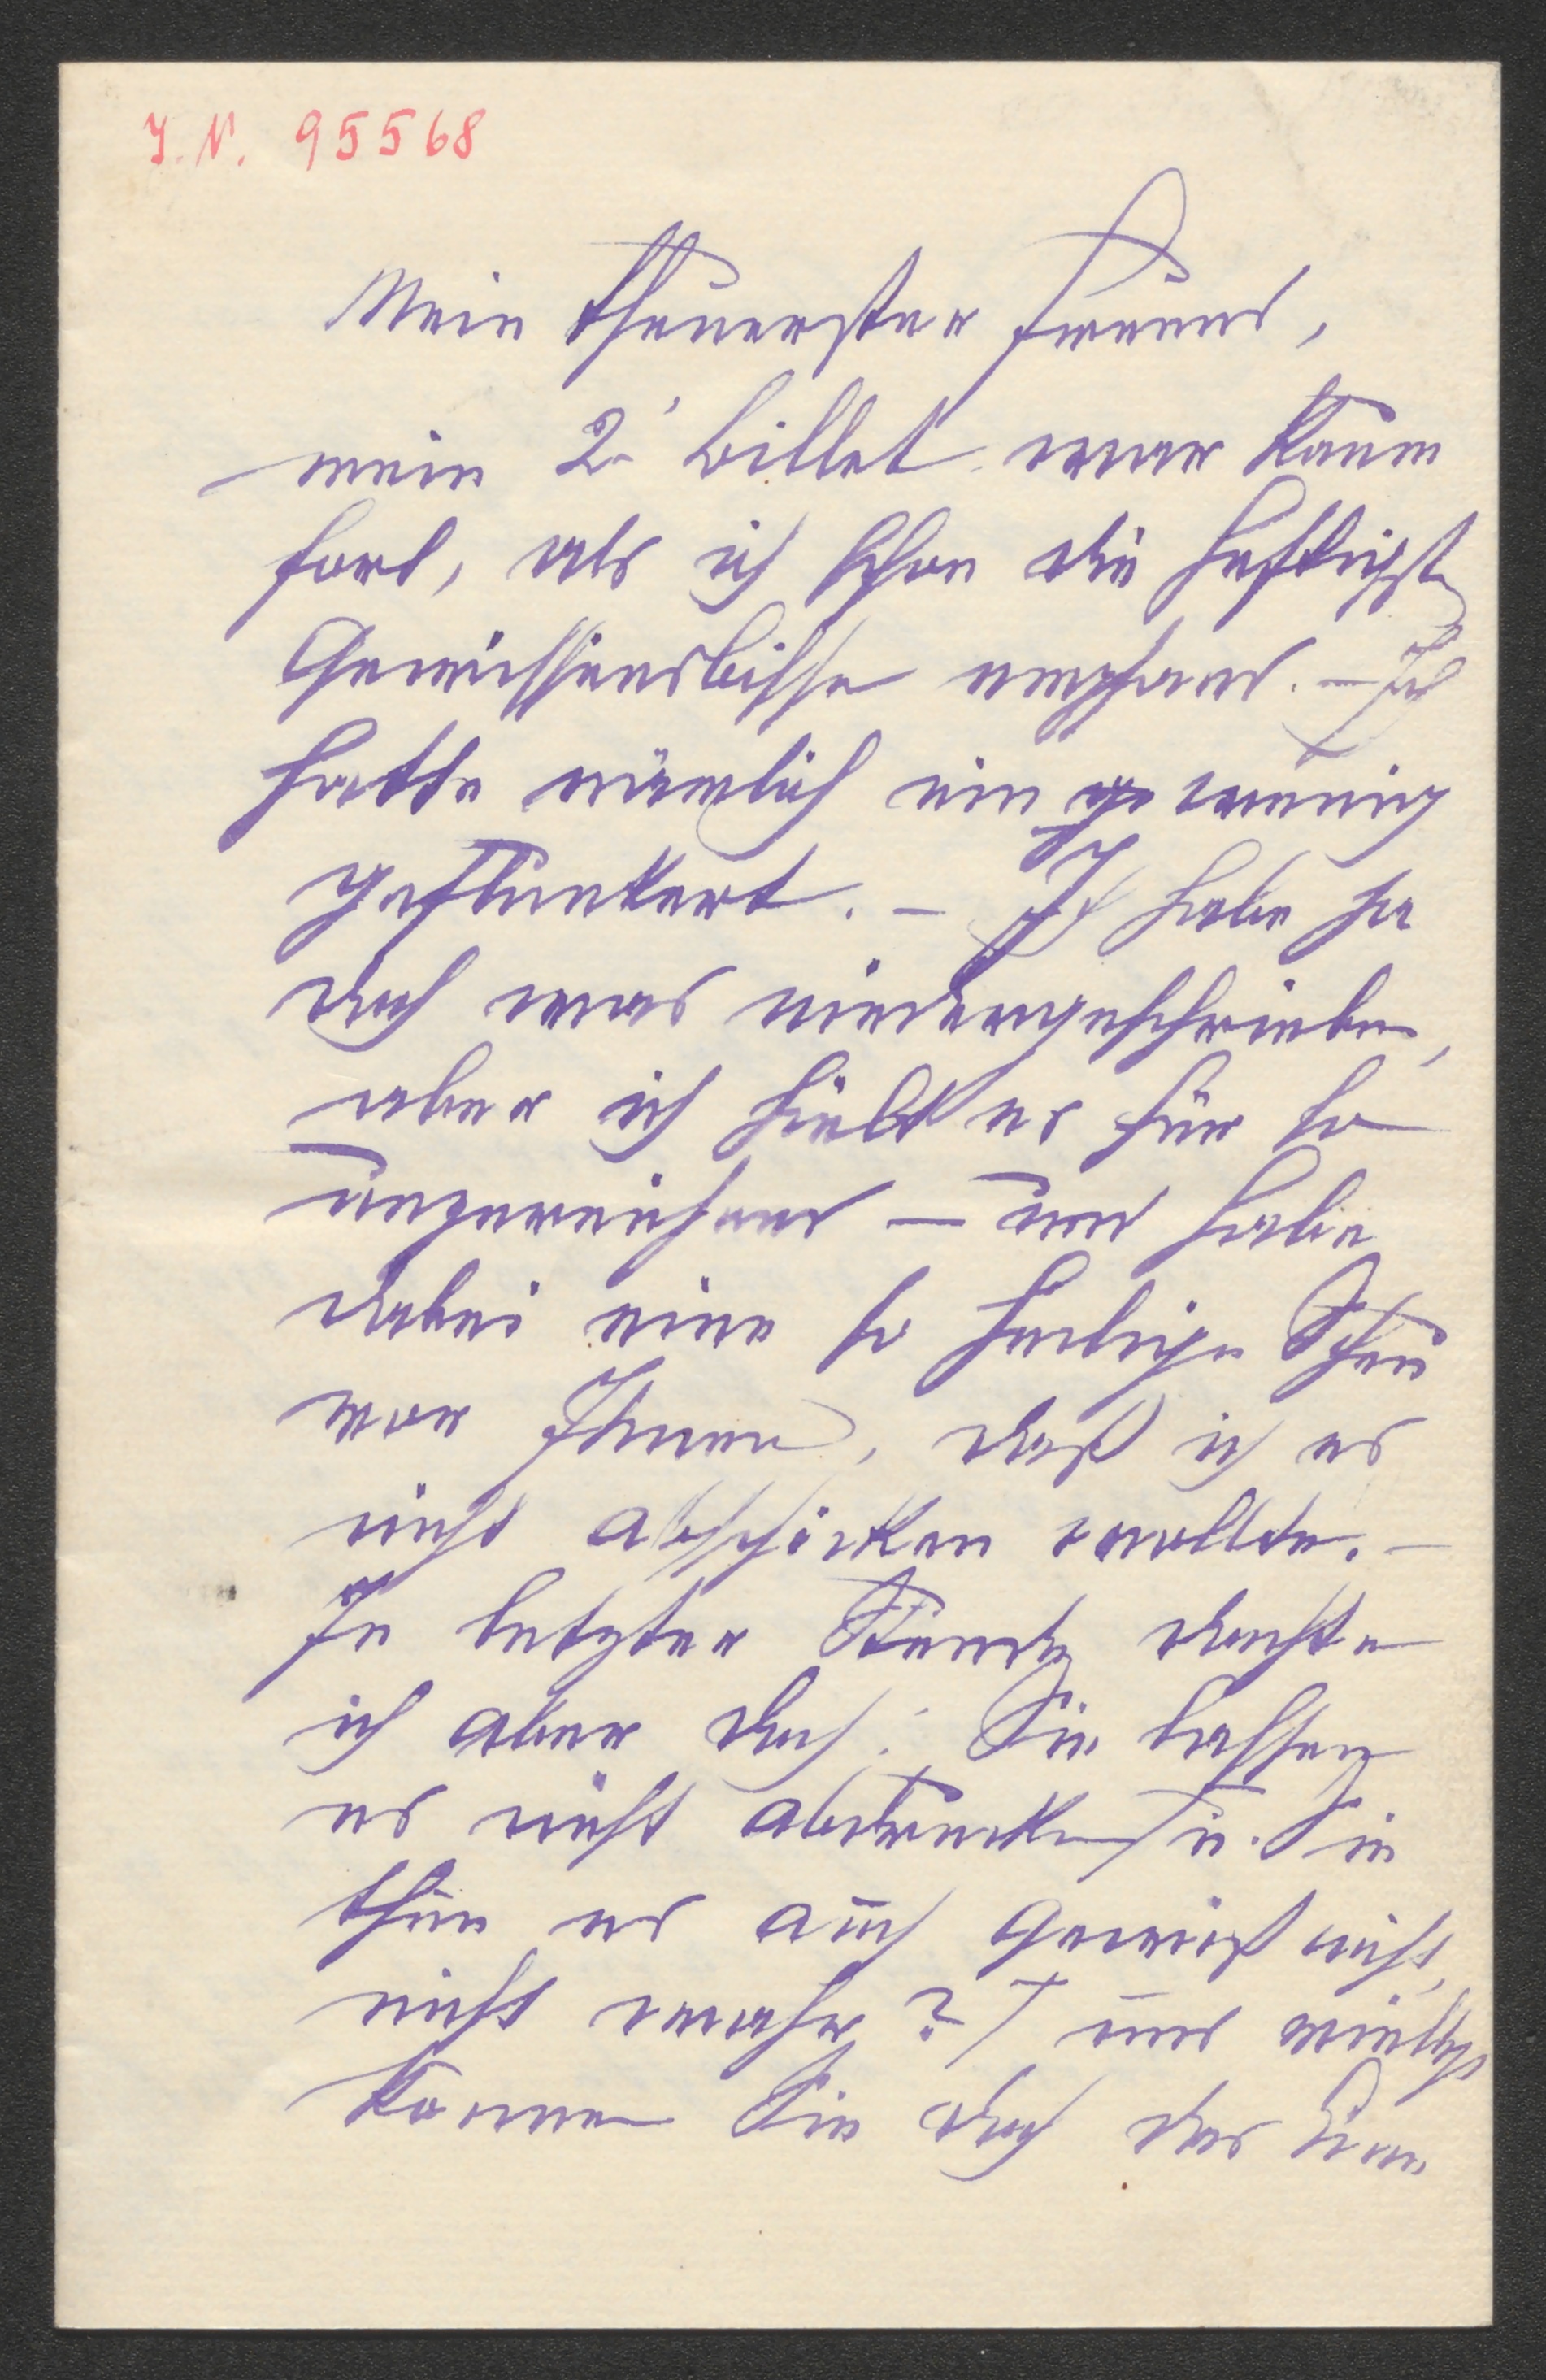 J. N. 95568
Mein theuerster Freund,
mein 2. Billet war kaum
fort, als ich schon die heftigst
Gewissensbisse empfand. – Ich
hatte nämlich ein wenig
geflunkert. – Ich habe ja
doch was niedergeschrieben,
aber ich hielt es für so
unzureichend – und habe
dabei eine so heilige Scheu
vor Ihnen, daß ich es
nicht abschicken wollte. –
In letzter Stunde dachte
ich aber doch: Sie lassen
es nicht abdrucken / u. Sie
thun es auch gewiß nicht,
nicht wahr? / und vielleicht
können Sie doch das